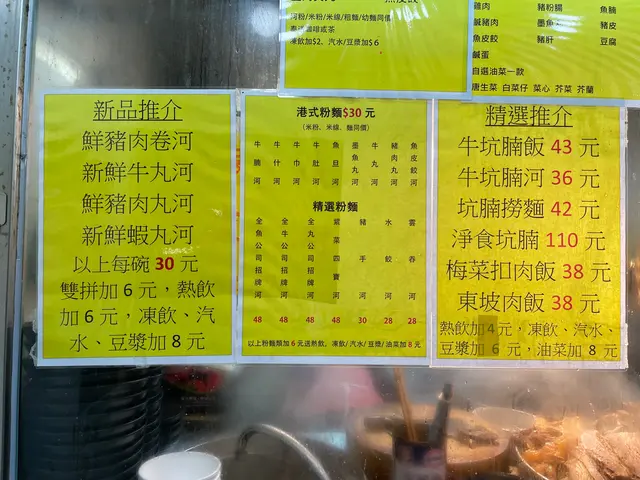 河粉/米粉/米線/稻麵/幼麵同價
凍飲加$2、汽水/豆漿加$6
雞肉 豬粉腸 魚腩
鹹豬肉 墨魚 豬皮
魚皮餃 豬肝 豆腐
鹹蛋
自選油菜一款
唐生菜 白菜仔 菜心 芥菜 芥蘭
新品推介
鮮豬肉卷河
新鮮牛丸河
鮮豬肉丸河
新鮮蝦丸河
以上每碗 30 元
雙拼加 6 元，熱飲
加 6 元，凍飲、汽
水、豆漿加 8 元
港式粉麵$30 元
(米粉、米線、麵同價)
牛腩河
牛什河
牛巾河
牛肚河
魚旦河
墨魚丸河
牛丸河
豬肉丸河
魚皮餃河
精選粉麵
全魚公司招牌河 48
全牛公司招牌河 48
全丸公司招牌河 48
紫菜四寶河 48
豬手河 30
水餃河 28
雲吞河 28
以上粉麵類加 6 元送熱飲，凍飲/汽水/豆漿/油菜加 8 元
精選推介
牛坑腩飯 43 元
牛坑腩河 36 元
坑腩撈麵 42 元
淨食坑腩 110 元
梅菜扣肉飯 38 元
東坡肉飯 38 元
熱飲加 4 元，凍飲、汽水、
豆漿加 6 元，油菜加 8 元